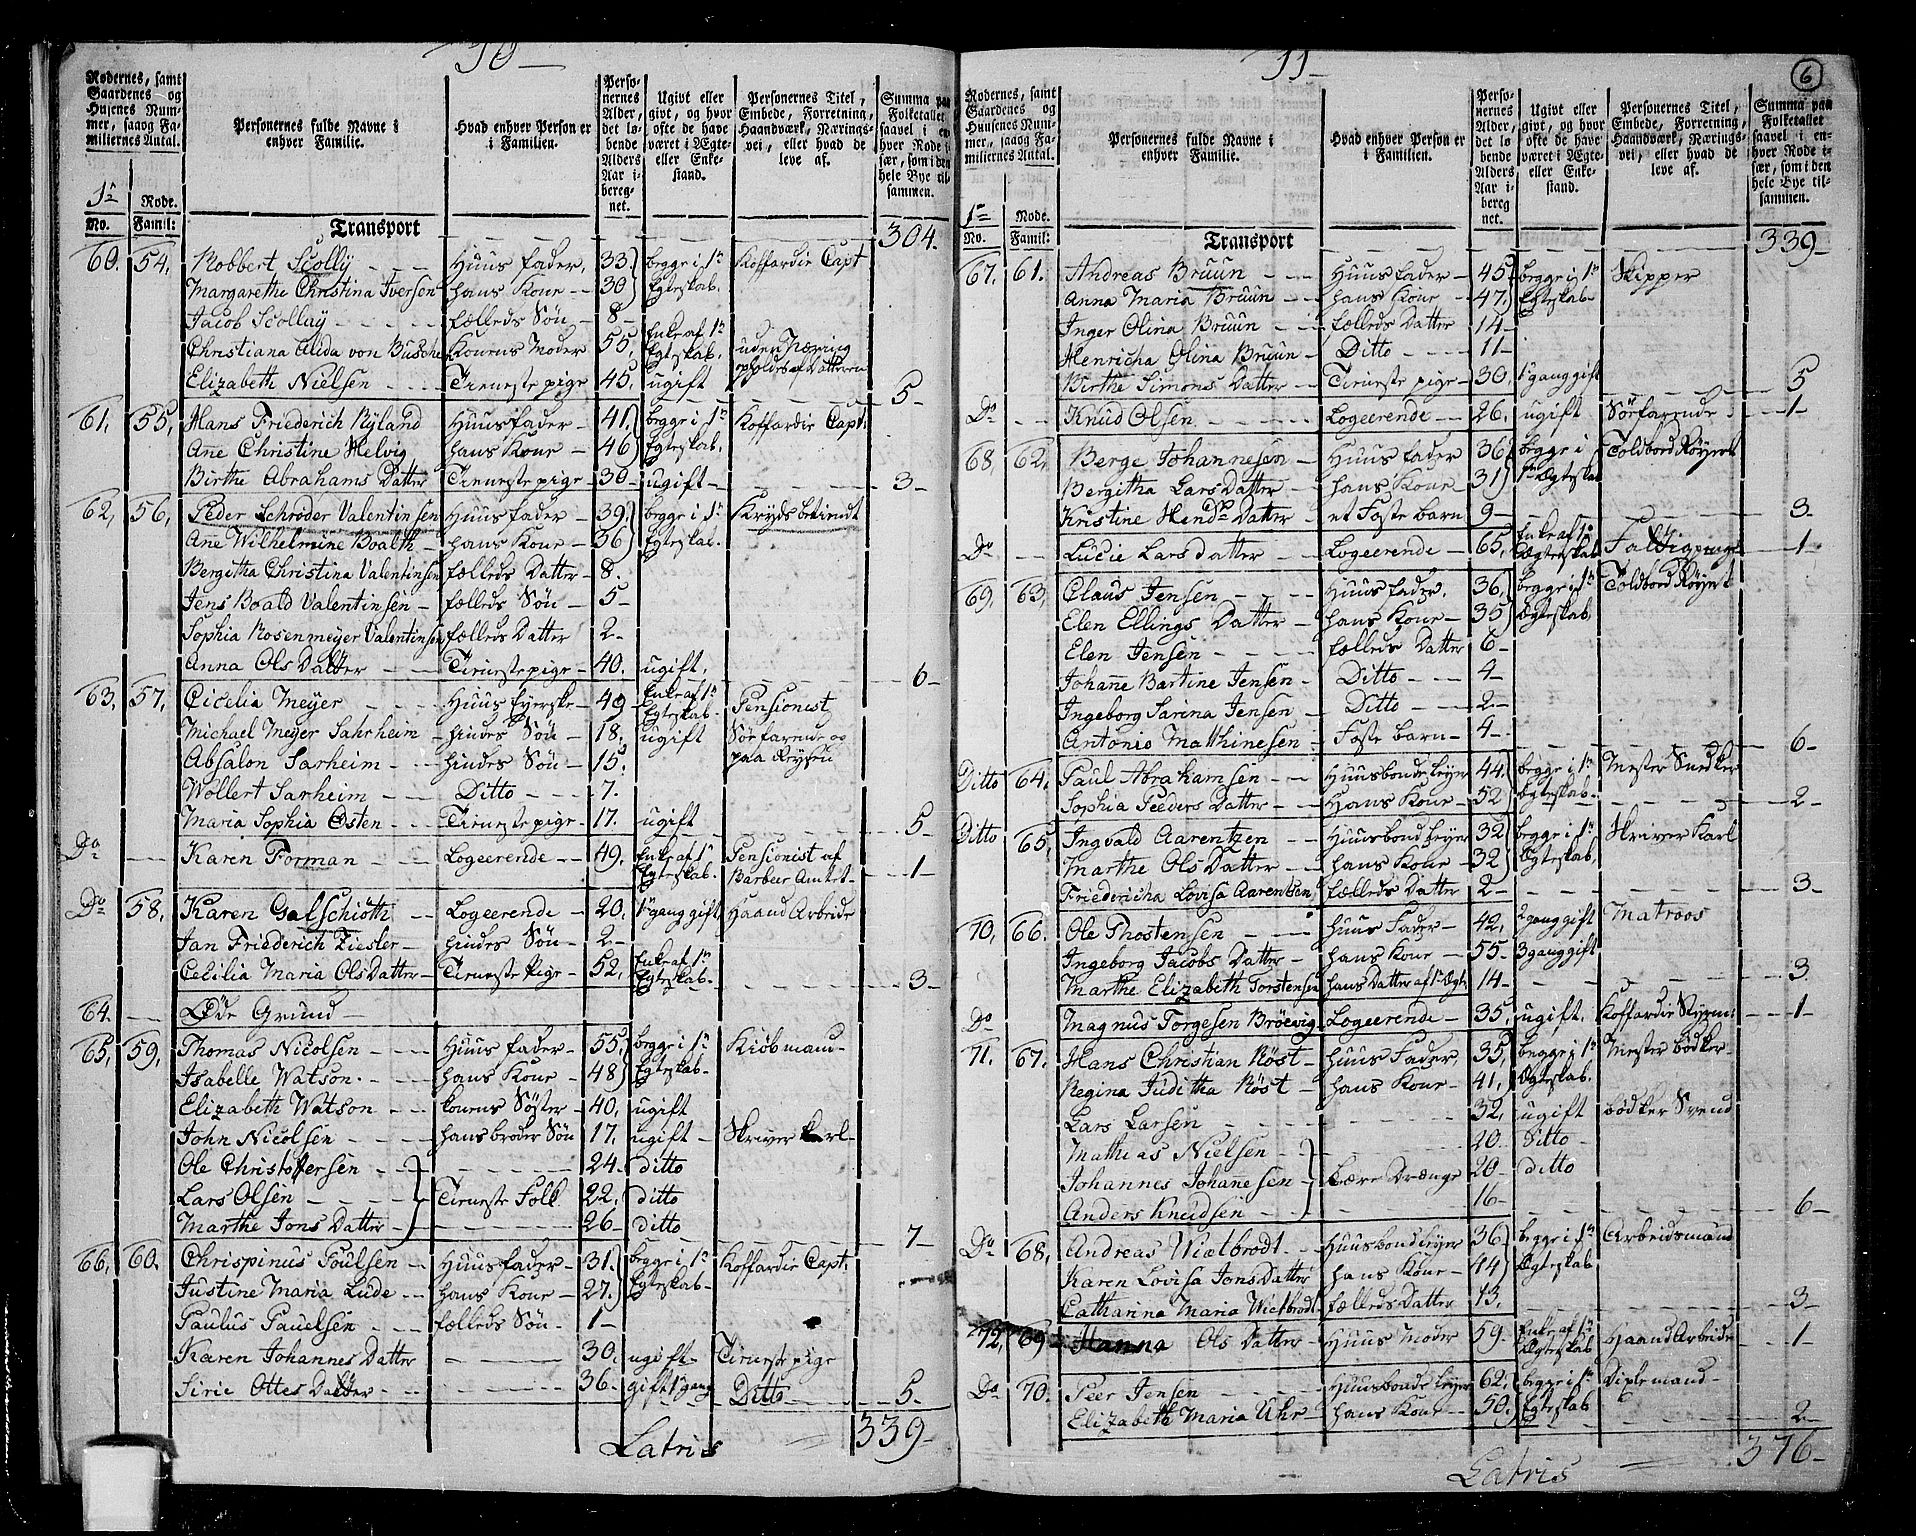 10
Rodernes, samt Gaardenes og Husenes Nummer, saaog Familiernes Antal.
Personernes fulde Navne i enhver Familie.
Hvad enhver Person er i Familien.
Personernes Alder, det løbende Alders Aar iberegnet.
Ugivt eller givt, og hvor ofte de have været i Ægte- eller Enkestand.
Personernes Titel, Embede, Forretning, Haandværk, Næringsvei, eller hvad de leve af.
Summa paa Folketallet saavel i enhver Rode især, som i den hele Bye tilsammen.
1te Rode.
No. Famil:
Transport 304.
60. 54. Robbert Scolly - Huus fader, 33. begge i 1te Koffardie Capt
Margarethe Christina Iversen hans Kone - 30 Egteskab.
Jacob Scollay - fælleds Søn - 8 -
Christiana Auda von Busche Konens Moder 55, Enke af 1te Egteskab. uden Næring opholdes af Datteren
Elizabeth Nielsen - Tieneste pige 45, ugift 5 -
61, 55, Hans Friederich Ryland Huusfader - 41, begge i 1te Koffardie Capt:
Ane Christine Helvig hans Kone - 46 Egteskab.
Birthe Abrahams Datter Tieneste pige - 30 - ugift - 3 -
62, 56, Peder Schrøder Valentinsen Huus fader - 39. begge i 1te Kryds betiendt
Ane Wilhelmine Boalth - hans Kone - 36 Egteskab.
Bergitha Christina Valentinsen fælleds Datter - 8.
Jens Boald Valentinsen - fælleds Søn - 5 -
Sophia Rosenmeyer Valentinsen fælleds Datter 2 -
Anna Ols Datter - Tieneste pige - 40. ugift. 6 -
63, 57, Cicelia Meyer Huus Eyerske - 49 - Enke af 1te Egteskab - Pensionist
Michael Meyer Sahrheim - hindes Søn - 18, ugift Søefarende og paa Reysen
Absalon Sarheim - hindes Søn - 15.
Wollert Sarheim - Ditto - 7.
Maria Sophia Osten - Tieneste pige - 17. ugift 5 -
Do Karen Forman - Logeerende - 49. Enke af 1te Egteskab. Pensionist af Barbeer Amtet - 1 -
Do 58, Karen Galschiøth - Logeerende - 20. 1te gang gift, Haand Arbeide
Jan Friederich Ziesler - hindes Søn - 2 -
Cecilia Maria Ols Datter - Tieneste Pige - 52, Enke af 1te Egteskab. 3 -
64. Øde Grund -
65, 59, Thomas Nicolsen - Huus fader - 55, begge i 1te Kiøbmand -
Isabelle Watson. - hans Kone - 48 Egteskab -
Elizabeth Watson - konens Søster - 40, ugift
John Nicolsen - hans broder Søn 17, ugift - Skriver karl -
Ole Christoffersen - 24 - ditto
Lars Olsen - Tieneste Folk 22, ditto
Marthe Jons Datter - 26 - ditto 7 -
66, 60. Chrispinus Poulsen - Huusfader - 31. begge i 1te Koffardie Capt.
Justine Maria Lude - hans Kone - 27. Egteskab -
Paulus Pauelsen - fælleds Søn - 1 -
Karen Johannes Datter - 30. ugift - Tieneste pige
Sirie Ottes Datter - 36 - gift 1te gang Ditto 5 -
Latris 339 -
11
6
Rodernes, samt Gaardenes og Husenes Nummer, saaog Familiernes Antal.
Personernes fulde Navne i enhver Familie.
Hvad enhver Person er i Familien.
Personernes Alder, det løbende Alders Aar iberegnet.
Ugivt eller givt, og hvor ofte de have været i Ægte- eller Enkestand.
Personernes Titel, Embede, Forretning, Haandværk, Næringsvei, eller hvad de leve af.
Summa paa Folketallet saavel i enhver Rode især, som i den hele Bye tilsammen.
1te Rode.
No. Famil:
Transport 339 -
67, 61. Andreas Bruun - Huus fader - 45 begge i 1te Skipper
Anna Maria Bruun - hans Kone - 47. Egteskab
Inger Olina Bruun - fælleds Datter 14 -
Henricha Olina Bruun - Ditto - 11 -
Birthe Simons Datter - Tieneste pige - 30. 1te gang gift 5
Do Knud Olsen - Logeerende - 26, ugift Søefarende - 1 -
68, 62, Berge Johannesen - Huus fader 36 begge i Toldbord Røyert
Bergitha Lars Datter - hans Kone - 31 1te Ægteskab
Kristine Hends Datter - et Foste barn 9 - 3 -
Do Lucie Lars datter - Logeerende - 65, Enke af 1te Ægteskab 1 -
69, 63, Claus Jensen - Huus fader, 36, begge i 1te Toldbord Røyert
Elen Ellings Datter - hans Kone - 35 Ægteskab,
Elen Jensen - fælleds Datter 6 -
Johane Bartine Jensen - Ditto - 4
Ingeborg Sarina Jensen - Ditto - 2 -
Antonio Matthinesen - Foste barn - 4 - 6 -
Ditto 64. Paul Abrahamsen - Huusbonde leyer 44. begge i 1te Mester Snedker
Sophia Peeders Datter - Hans Kone - 52 Egteskab. 2 -
Ditto 65, Ingvald Aarentzen - Huusbond leyer 32 begge i 1te Skriver Karl
Marthe Ols Datter - hans Kone - 32 Ægteskab,
Friedericha Lovisa Aarentsen fælleds Datter 2 - 3 -
70, 66. Ole Thostensen - Huus Fader - 42, 2 gang gift Matroos
Ingeborg Jacobs Datter - hans Kone - 55 - 3 gang gift
Marthe Elizabeth Torstensen hans Datter af 1te Ægt. 14 - 3
Do Magnus Torgesen Brøevig Logeerende - 35, ugift. Koffardie Styrm: 1 -
71. 67. Hans Christian Røst - Huus Fader, 35, begge i 1te Mester bødker -
Regina Juditha Røst - hans Kone - 41, Ægteskab.
Lars Larsen - 32, ugift bødker Svend
Mathias Nielsen - 20 - Ditto -
Johannes Johanesen - Lære Drænge 20 - ditto
Anders Knudsen - 16 - 6 -
Do 68, Andreas Wielbrodt - Huusbond leyer 36. begge i 1te Arbeidsmand
Karen Lovisa Jons Datter hans Kone - 44 Ægteskab
Catharina Maria Wielbrodt - fælleds Datter 13. 3 -
72, 69 Hanna Ols Datter - Huus Moder 59. Enke af 1te Ægteskab Haand Arbeide - 1 -
Do 70. Peer Jensen - Huusbonde leyer 62, begge i 1te
Elizabeth Maria Uhr - hans Kone - 50. Egteskab 2 -
Latris 376 -